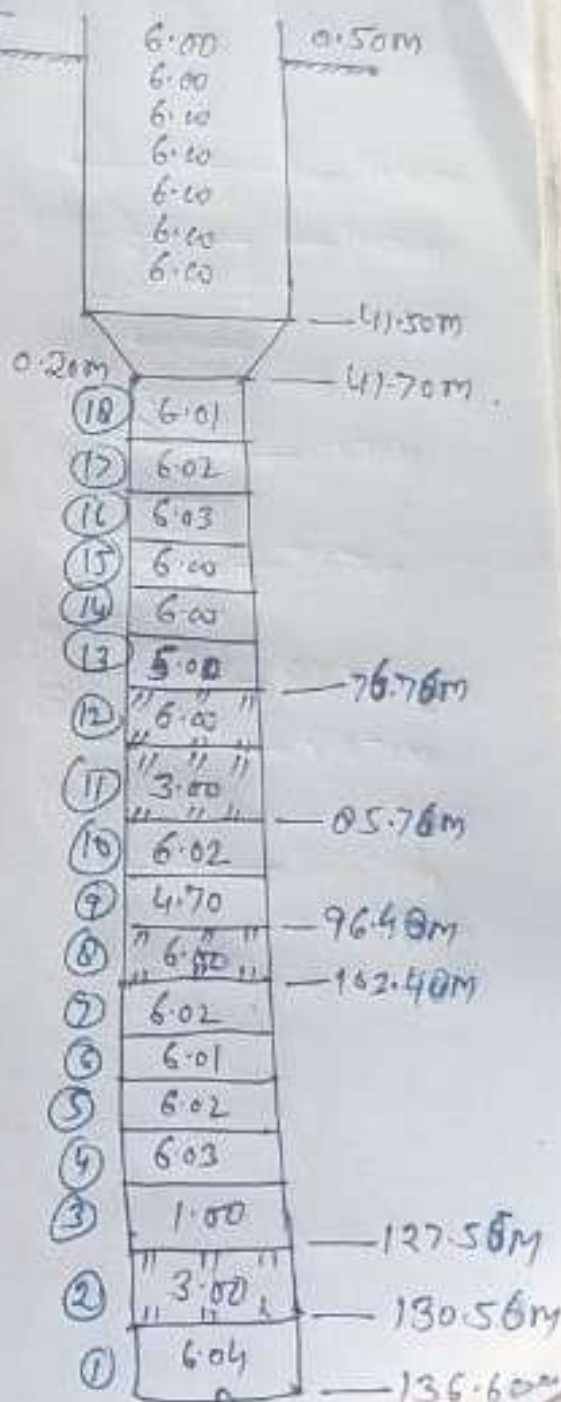 6.00 0.50m
6.00
6.00
6.00
6.00
6.00
6.00
41.50m
0.20m 41.70m
18 6.01
17 6.02
16 6.03
15 6.00
14 6.00
13 5.00
76.76m
12 6.00
11 3.00
85.76m
10 6.02
9 4.70
96.48m
8 6.00
102.48m
7 6.02
6 6.01
5 6.02
4 6.03
3 1.00
127.56m
2 3.00
130.56m
1 6.04
136.60m